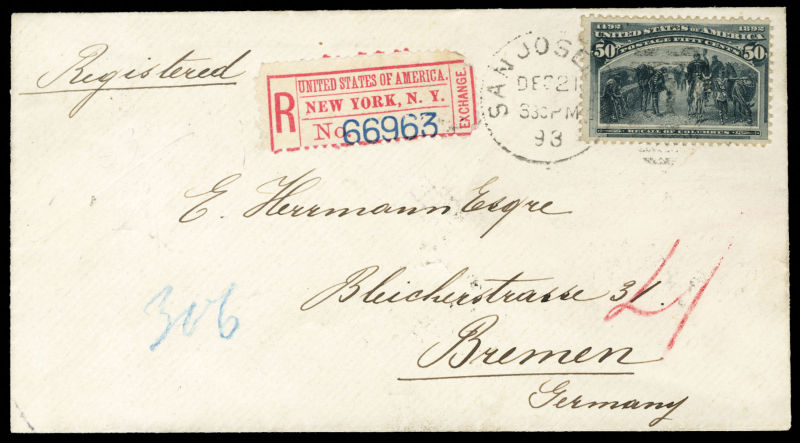 Registered
UNITED STATES OF AMERICA.
R
NEW YORK, N. Y.
No. 66963
EXCHANGE.
SAN JOSE
DEC 21
330PM
93
1492 1892
UNITED STATES OF AMERICA
50¢ POSTAGE FIFTY CENTS 50¢
RECALL OF COLUMBUS
E. Herrmann Esqre
Bleicherstrasse 31.
306
Bremen
Germany